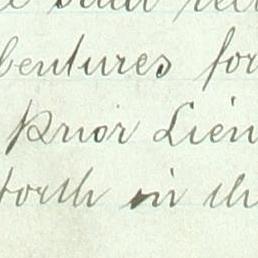 said
bentures for
Prior Lien
forth in th